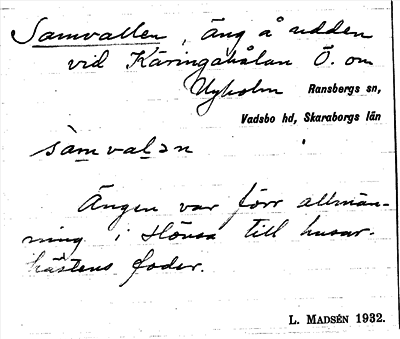 Samvallen, äng å udden
vid Käringahålan Ö. om
Nyholm Ransbergs sn,
Vadsbo hd, Skaraborgs län
sàm valən
Ängen var förr allmän-
ning i Hönsa till husar-
hästens foder.
L. MADSÉN 1932.